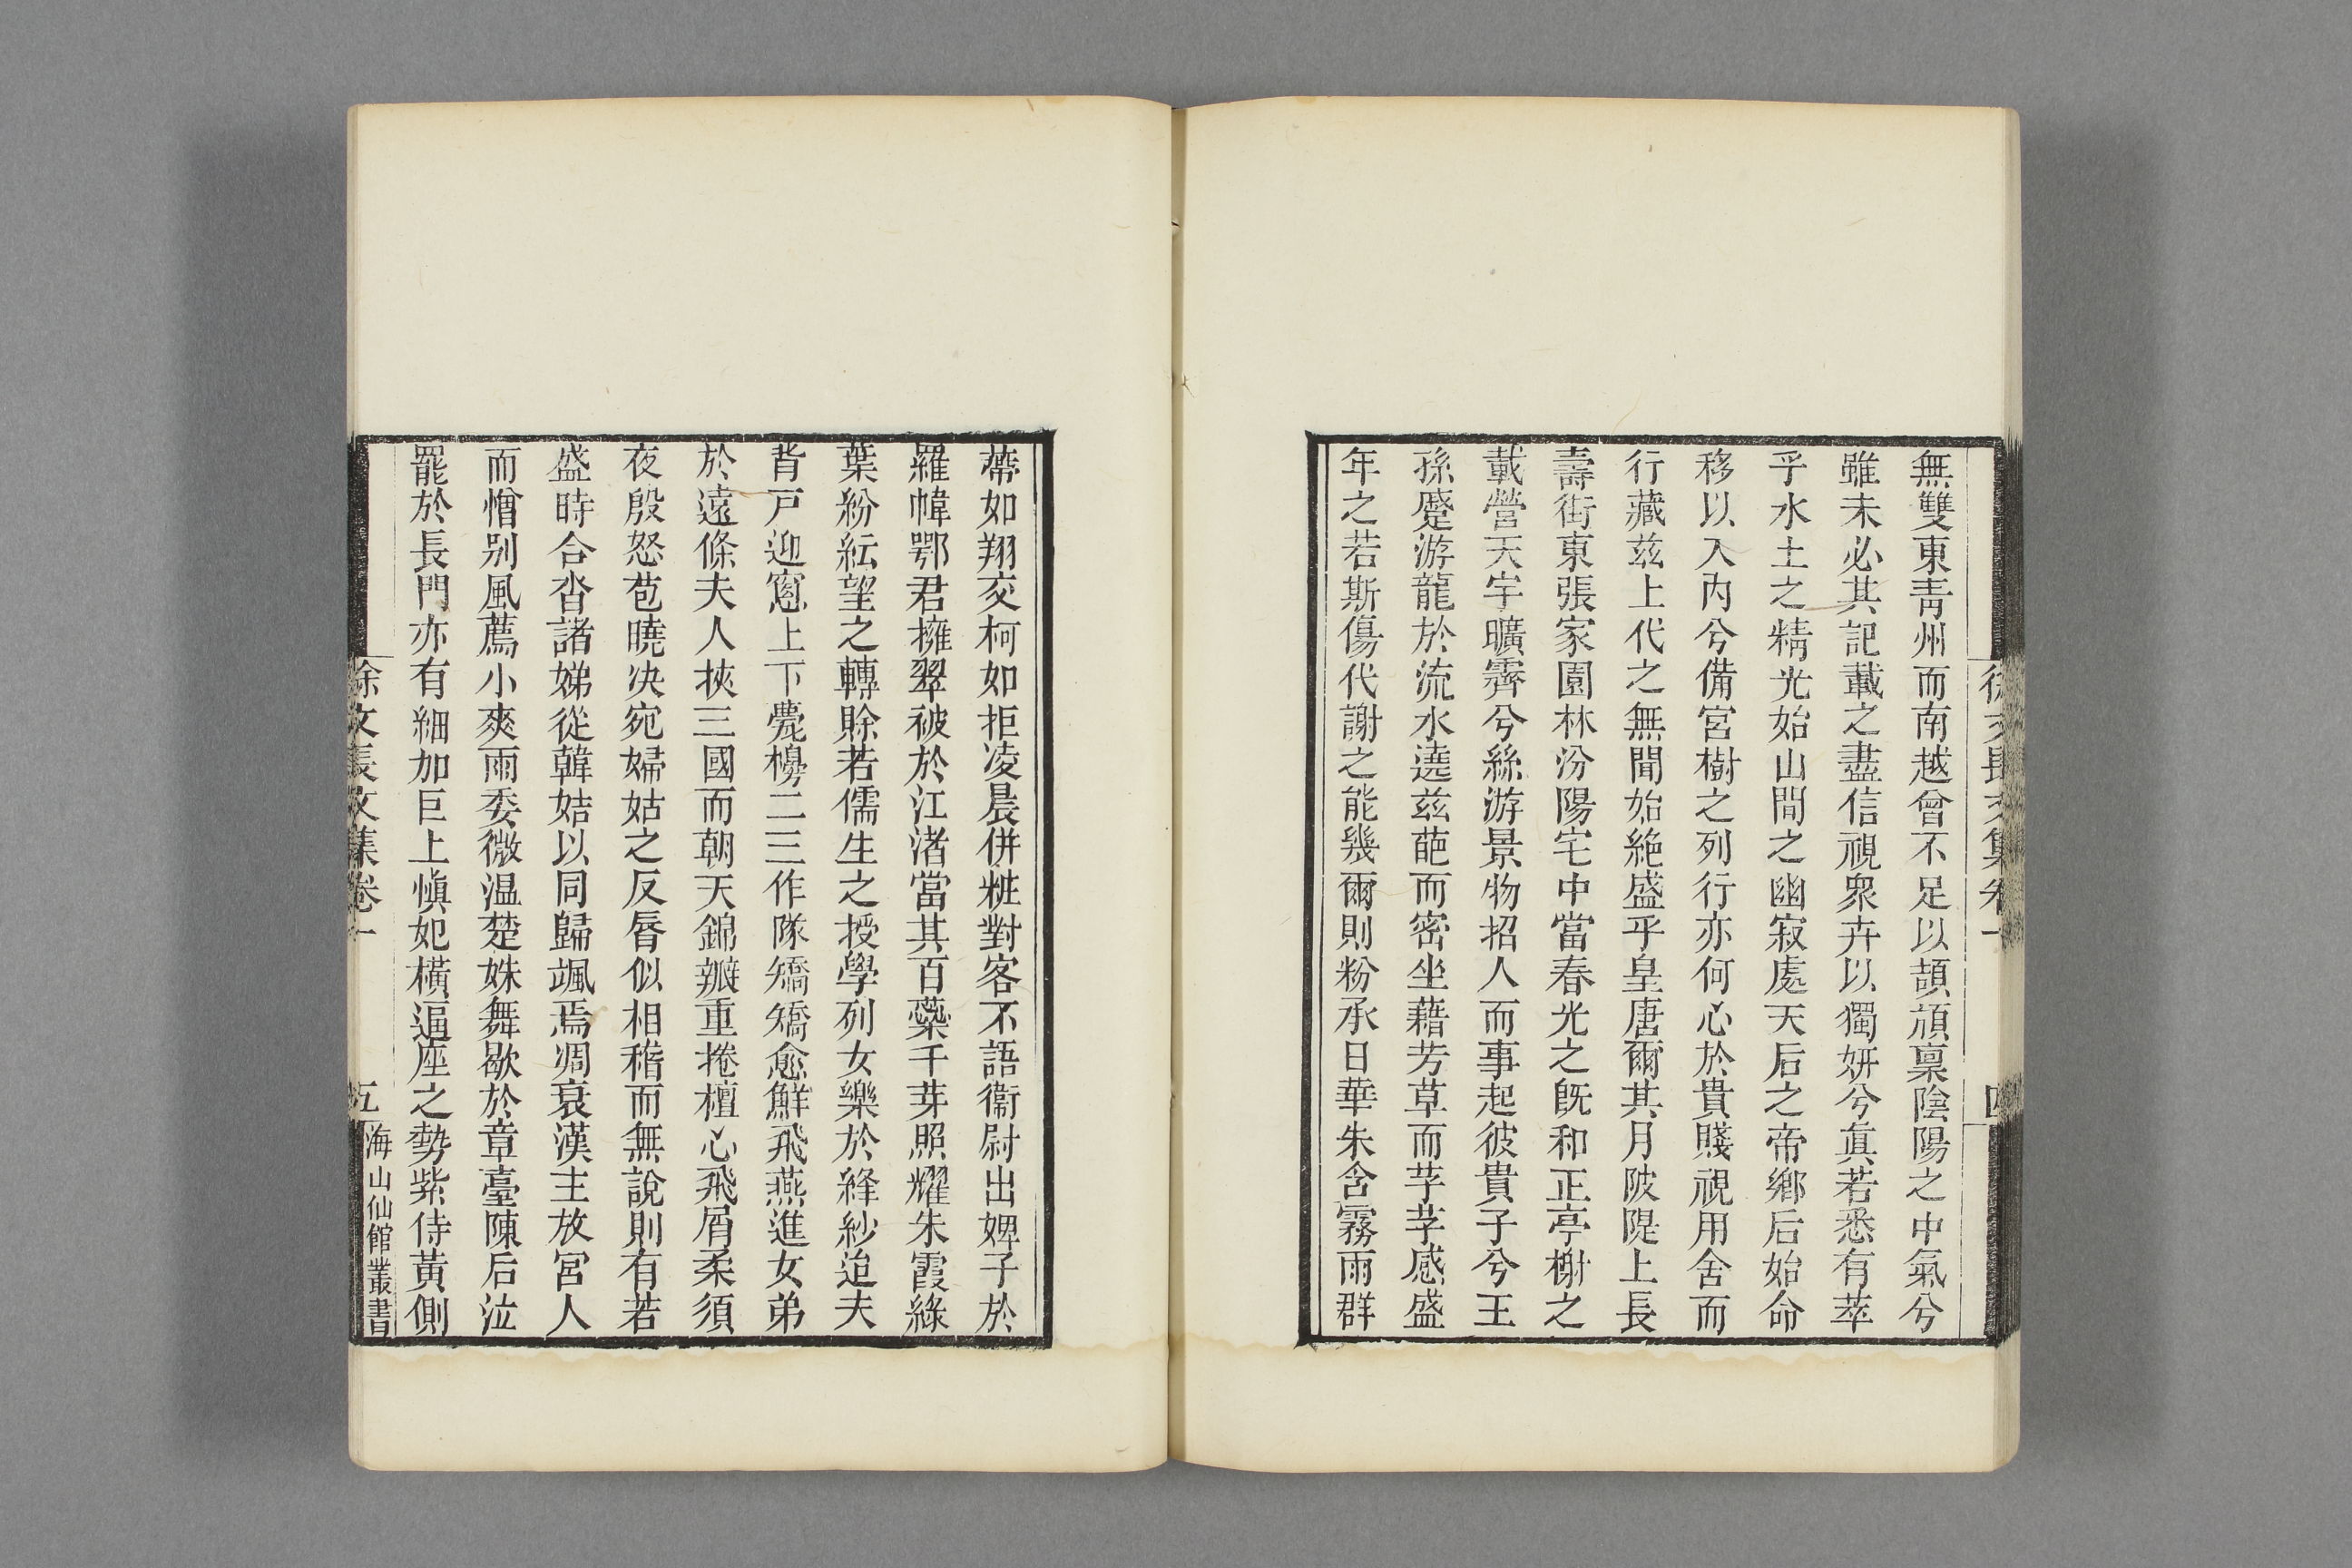 徐文長文集卷一
四
無雙東靑州而南越曾不足以頡頏稟陰陽之中氣兮
雖未必其記載之盡信視衆卉以獨妍兮眞若悉有萃
乎水土之精光始山間之幽寂處天后之帝鄉后始命
移以入內兮備宮樹之列行亦何心於貴賤視用舍而
行藏茲上代之無聞始絶盛乎皇唐爾其月陂隄上長
壽街東張家園林汾陽宅中當春光之旣和正亭榭之
載營天宇曠霽兮絲游景物招人而事起彼貴子兮王
孫蹙游龍於流水遶茲葩而密坐藉芳草而芋芋感盛
年之若斯傷代謝之能幾爾則粉承日華朱含霧雨群
蔕如翔交柯如拒凌晨併粧對客不語衞尉出婢子於
羅幃鄂君擁翠被於江渚當其百蘂千芽照耀朱霞綠
葉紛紜望之轉賖若儒生之授學列女樂於絳紗迨夫
背戸迎窻上下甍櫋二三作隊矯矯愈鮮飛燕進女弟
於遠條夫人挾三國而朝天錦瓣重捲檀心飛屑柔須
夜殷怒苞曉决宛婦姑之反脣似相稽而無說則有若
盛時合沓諸娣從韓姞以同歸颯焉凋衰漢主放宮人
而憎别風薦小爽雨委微温楚姝舞歇於章臺陳后泣
罷於長門亦有細加巨上愼妃橫逼座之勢紫侍黃側
徐文長文集卷一
五
海山仙館叢書